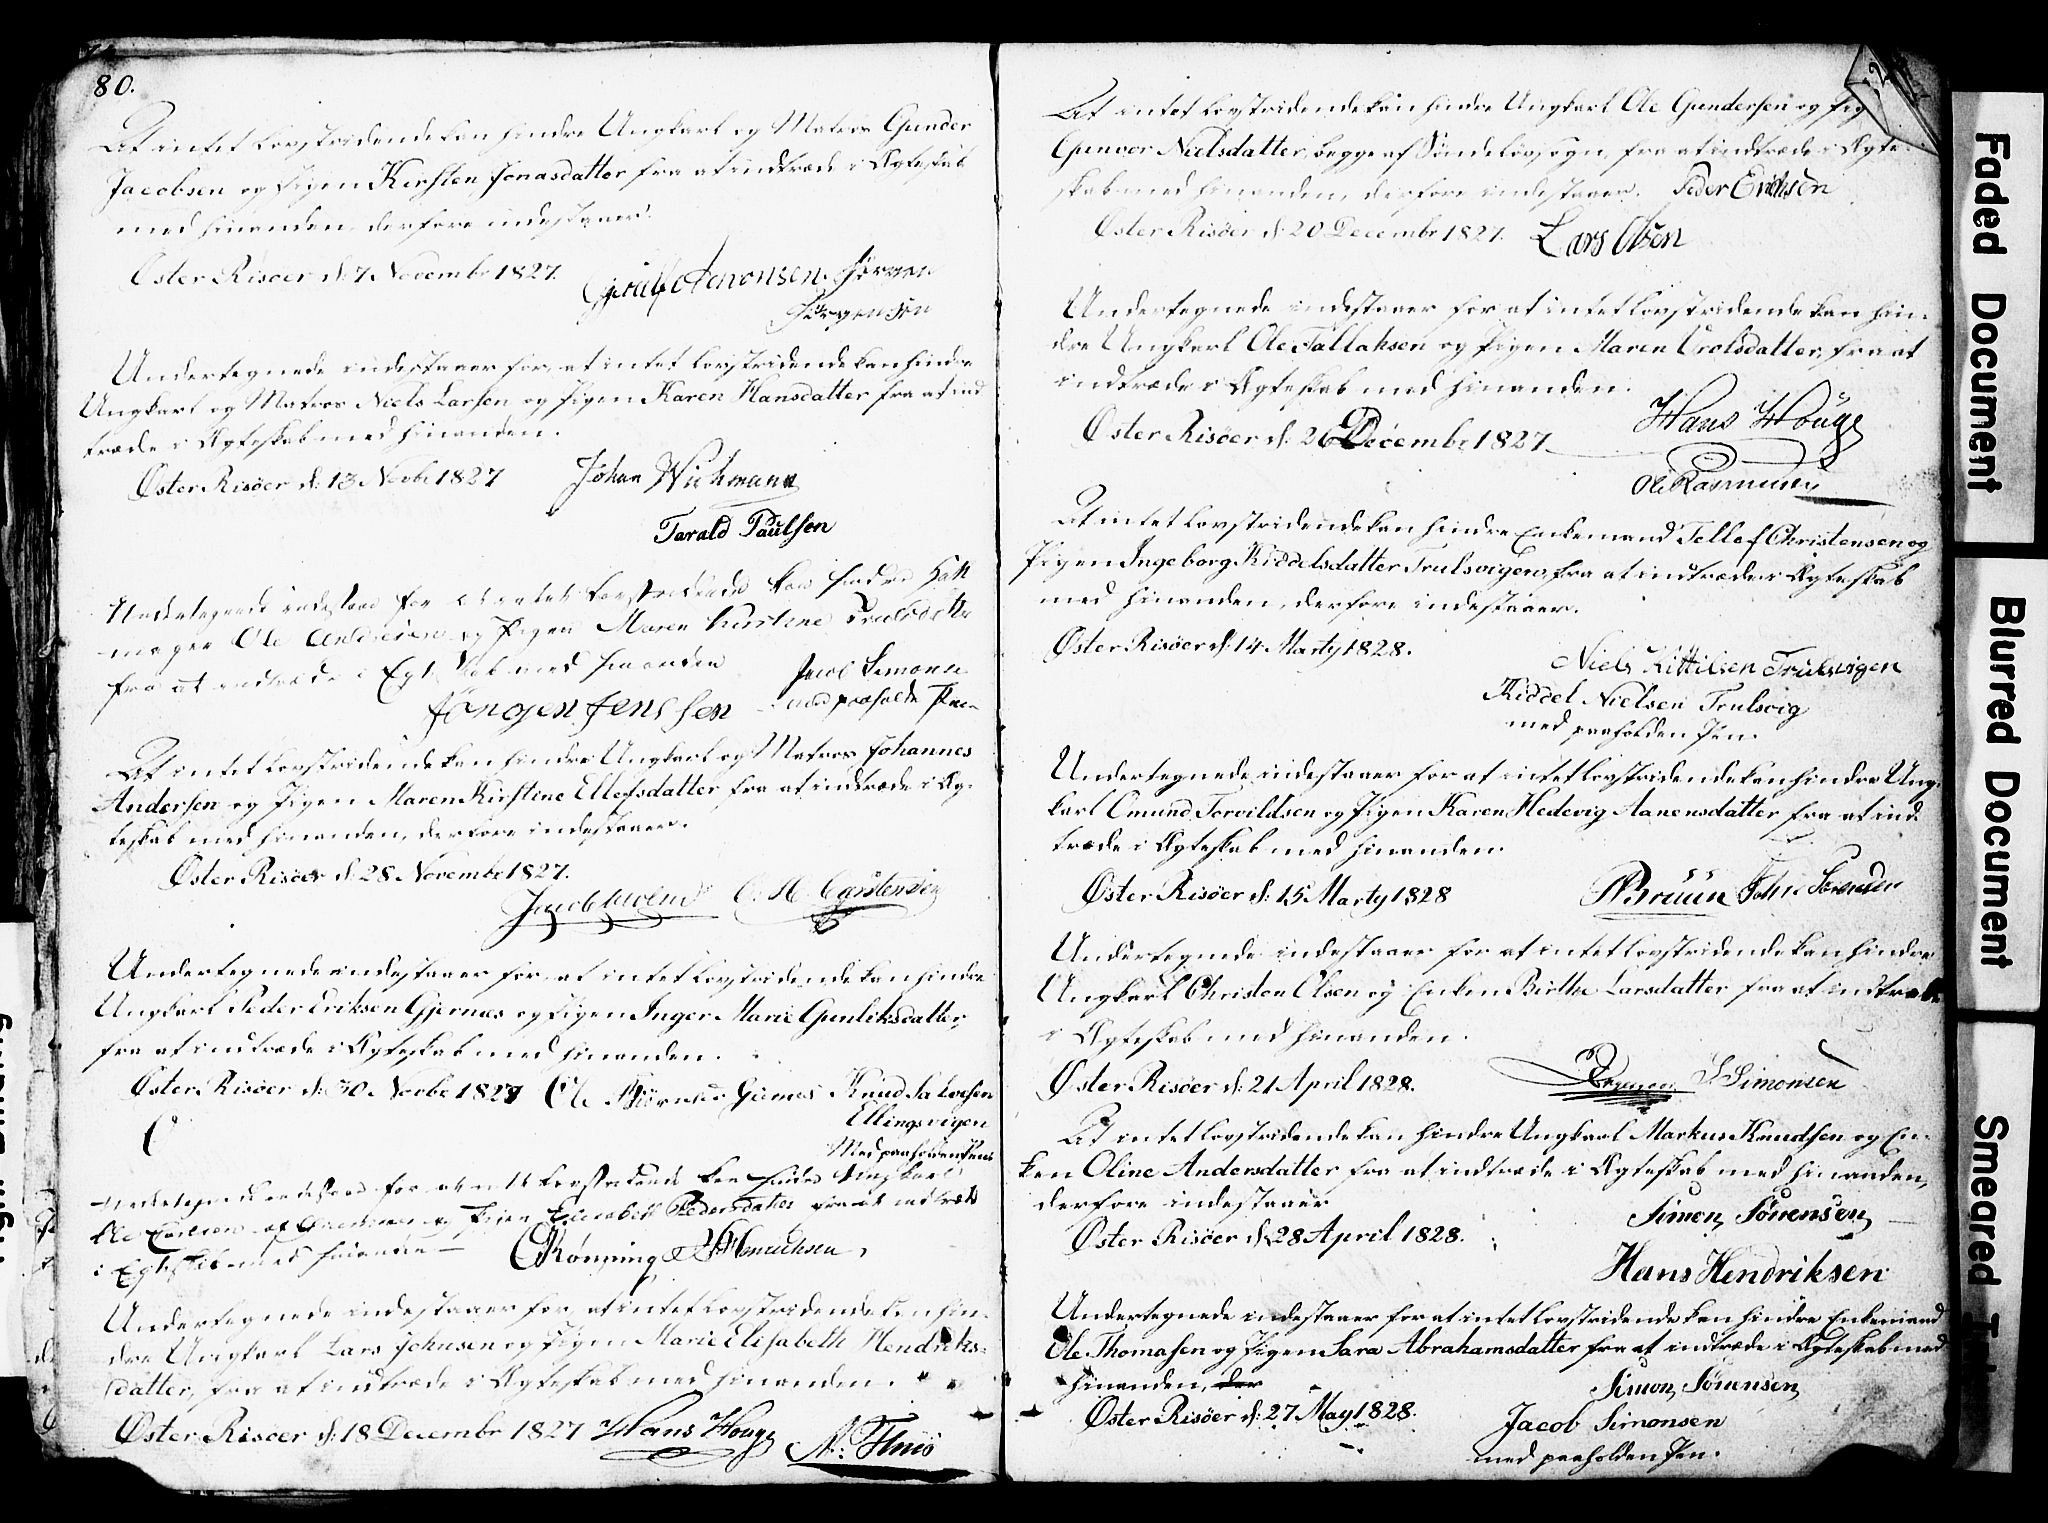 80.
At intet lovstridende kan hindre Ungkarl og Matros Gunder
Jacobsen og Pigen Kirsten Jonasdatter fra at indtræde i Ægteskab
med hinanden derfore indestaaer.
Øster Risöer d: 7 Novembr 1827. Jörgen
Jörgensen
Undertegnede indestaaer for, at intet lovstridende kan hindre
Ungkarl og Matros Niels Larsen og Pigen Karen Hansdatter fra at ind
træde i Ægteskab med hinanden.
Øster Risöer d: 13 Novbr 1827 Johan Wichmann
Tarald Paulsen
Undertegnede indestaae for at intet lovstridende kan hindre Hatt
mager Ole Andresen og Pigen Maren Kirstine
fra at indtræde i Egteskab med hinanden Jacob Simonsen
Jörgen Jenssen med paaholde Pen
At intet lovstridende kan hindre Ungkarl og Matros Johannes
Andersen og Pigen Maren Kirstine Ellefsdatter fra at indtræde i Æg-
teskab med hinanden, derfore indestaaer.
Øster Risöer d: 28 Novembr 1827.
C. H. Carstensen
Undertegnede indestaaer for at intet lovstridende kan hindre
Ungkarl Peder Eriksen Gjernæs og Pigen Inger Marie Gunliksdatter,
fra at indtræde i Ægteskab med hinanden.
Øster Risöer d: 30 Novbr 1827 Ole Gjernes Knud Jakobsen
Ellingsvigen
Med paaholden Pen
Undertegnede indestaae for at intet lovstridende kan hindre Ungkarl
Ole og Pigen Elisabeth Pedersdatter fra at indtræde
i Egteskab med hinanden — Rønning Hinrichsen
Undertegnede indestaaer for, at intet lovstridende kan hin-
dre Ungkarl Lars Johnsen og Pigen Marie Elisabeth Hendriks-
datter, fra at indtræde i Ægteskab med hinanden.
Øster Risöer d: 18 Decembr 1827 Hans Houge
At intet lovstridende kan hindre Ungkarl Ole Gundersen og Pig
Gunvor Nielsdatter, begge af Söndelövsogn, fra at indtræde i Ægte-
skab med hinanden, derfore indestaaer. Peder Erichsen
Øster Risöer d: 20 Decembr 1827. Lars Olsen
Undertegnede indestaaer for at intet lovstridende kan hin-
dre Ungkarl Ole Tallaksen og Pigen Maren Urolsdatter, fra at
indtræde i Ægteskab med hinanden.
Øster Risöer d: 26 Decembr 1827 Hans Houge
Ole Rasmusen
At intet lovstridende kan hindre Enkemand Tellef Christensen og
Pigen Ingeborg Kiddelsdatter Trulsvigen, fra at indtræde i Ægteskab
med hinanden, derfore indestaaer.
Øster Risöer d: 14 Marty 1828.
Niels Kittilsen Trulsvigen
Kiddel Nielsen Trulsvig
med paaholden Pen.
Undertegnede indestaaer for at intet lovstridende kan hindre Ung-
karl Omund Torvildsen og Pigen Karen Hedevig Aanensdatter fra at ind-
træde i Ægteskab med hinanden.
Øster Risöer d: 15 Marty 1828 Bruun John
Undertegnede indestaaer for at intet lovstridende kan hindre
Ungkarl Christen Olsen og Enken Birthe Larsdatter fra at indtræde
i Ægteskab med hinanden.
Øster Risöer d: 21 April 1828. S Simonsen
At intet lovstridende kan hindre Ungkarl Markus Knudsen og En-
ken Oline Andersdatter fra at indtræde i Ægteskab med hinanden,
derfore indestaaer
Simon Sörensen
Øster Risöer d: 28 April 1828.
Hans Hendriksen
Undertegnede indestaaer for at intet lovstridende kan hindre Enkemand
Ole Thomasen og Pigen Sara Abrahamsdatter fra at indtræde i Ægteskab med
hinanden, der
Simon Sörensen
Øster Risöer d: 27 May 1828. Jacob Simonsen
med paaholden Pen.
Faded Document
Blurred Document
Smeared